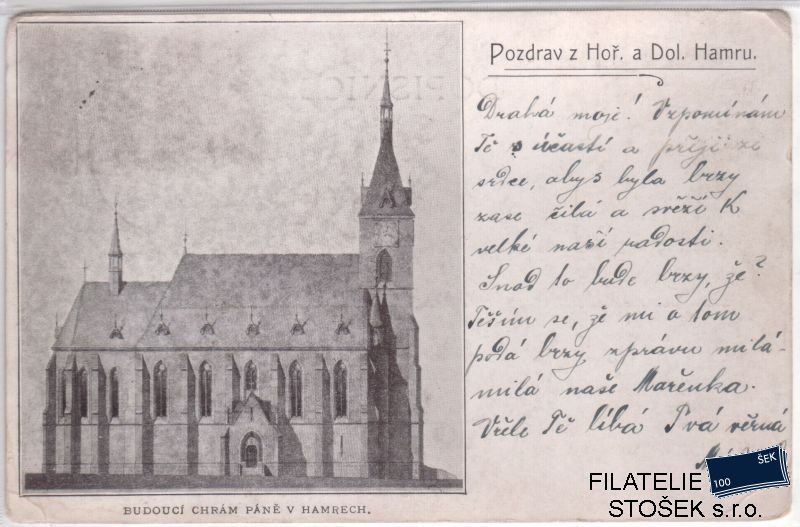 Pozdrav z Hoř. a Dol. Hamru.
Drahá moje! Vzpomínám
Tě s účastí a přeji ze
srdce, abys byla brzy
zase čilá a svěží k
velké naší radosti.
Snad to bude brzy, že?
Těším se, že mi o tom
podá brzy zprávu milá-
milá naše Mařenka.
Vřele Tě líbá Tvá věrná
BUDOUCÍ CHRÁM PÁNĚ V HAMRECH.
FILATELIE
STOŠEK s.r.o.
100
ŠEK